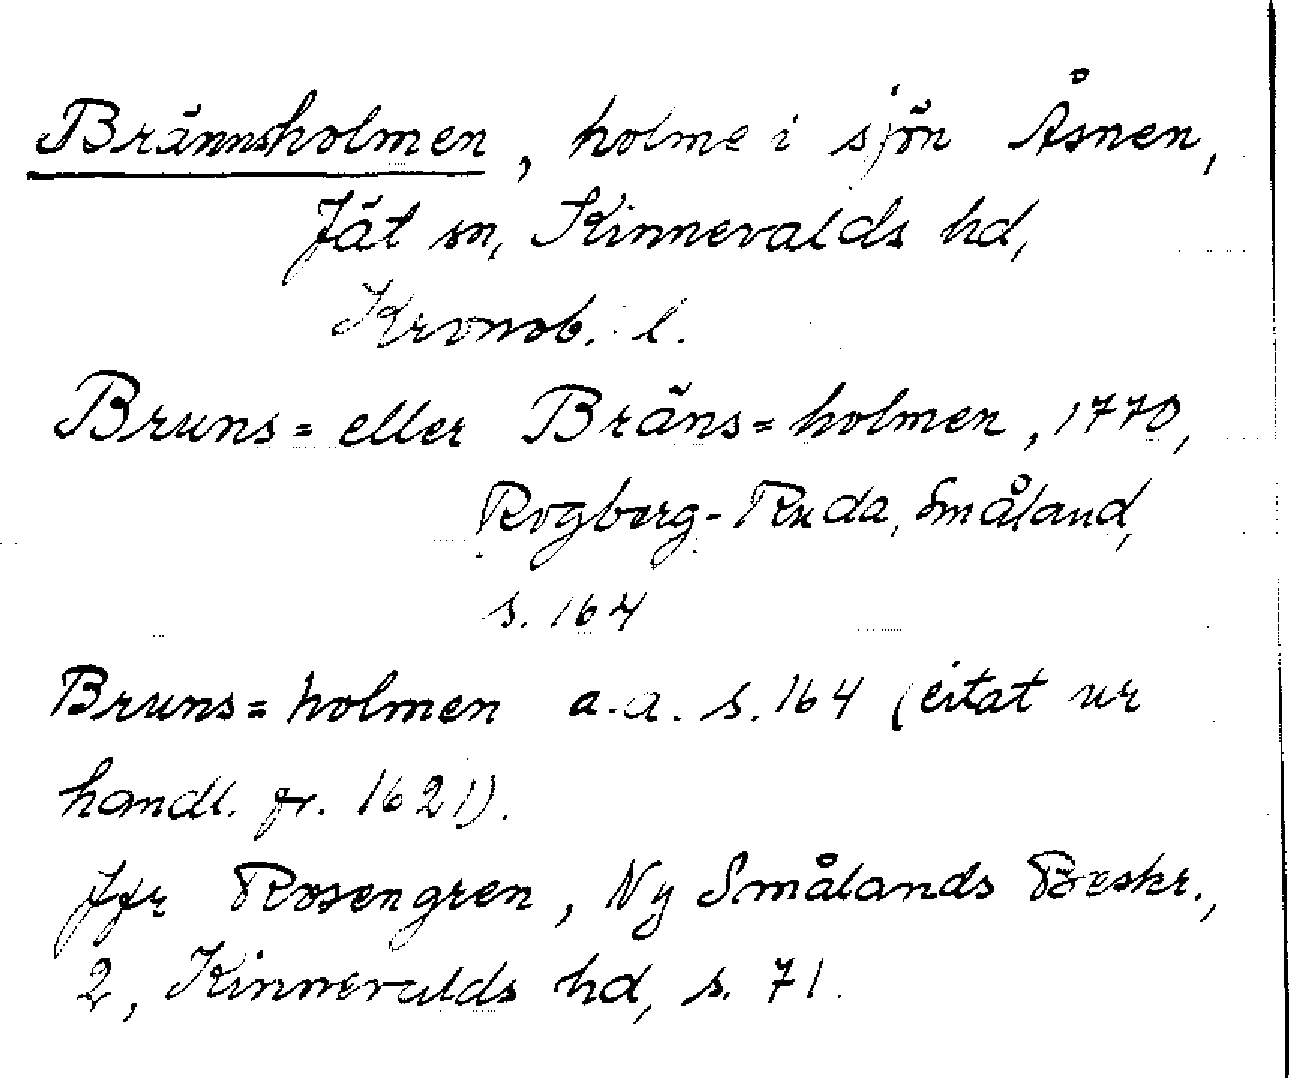 Brännsholmen, holme i sjön Åsnen,
Jät sn, Kinnevalds hd,
Kronob. l.
Bruns= eller Bräns=holmen, 1770,
Rogberg-Ruda, Småland,
s. 164
Bruns=holmen a.a. s. 164 (citat ur
handl. fr. 1621).
Jfr Rosengren, Ny Smålands Beskr.,
2, Kinnevalds hd, s. 71.